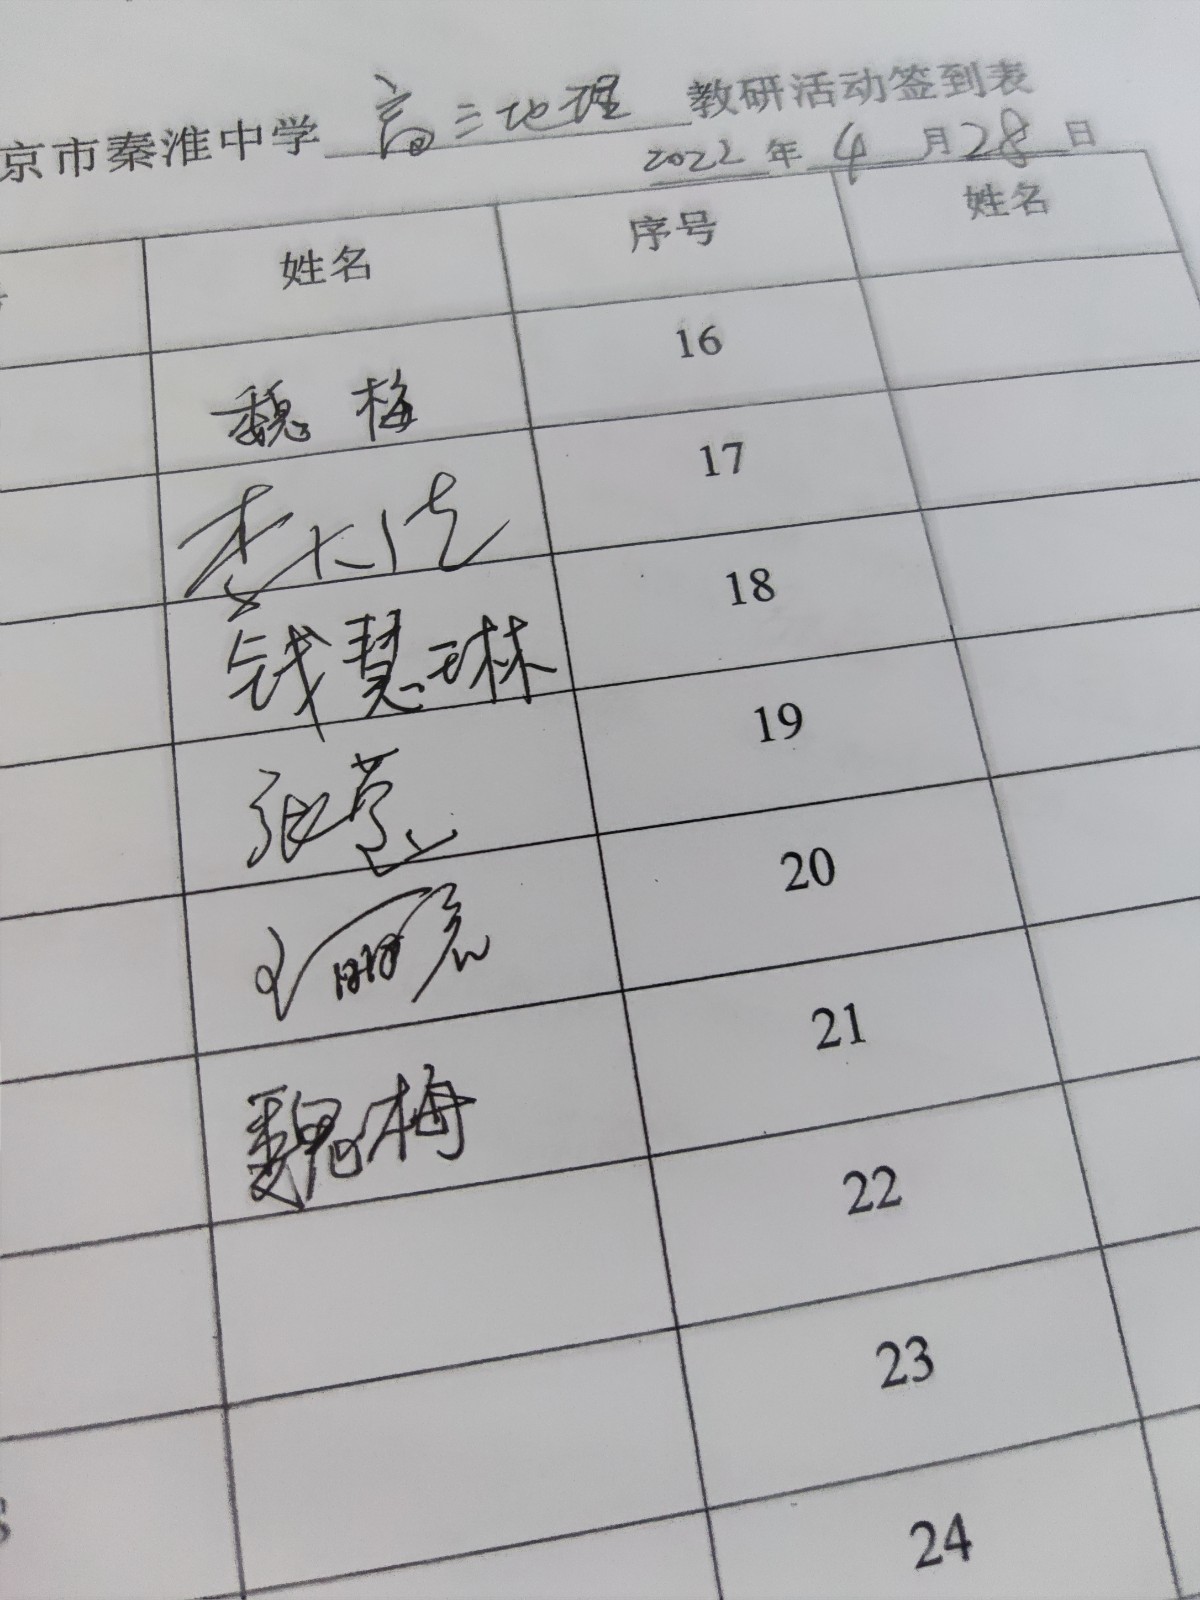 京市秦淮中学 高三地理 教研活动签到表
2022 年 4 月 28 日
姓名 序号 姓名
魏梅 16
17
钱慧琳 18
张 19
王 20
魏梅 21
22
23
24